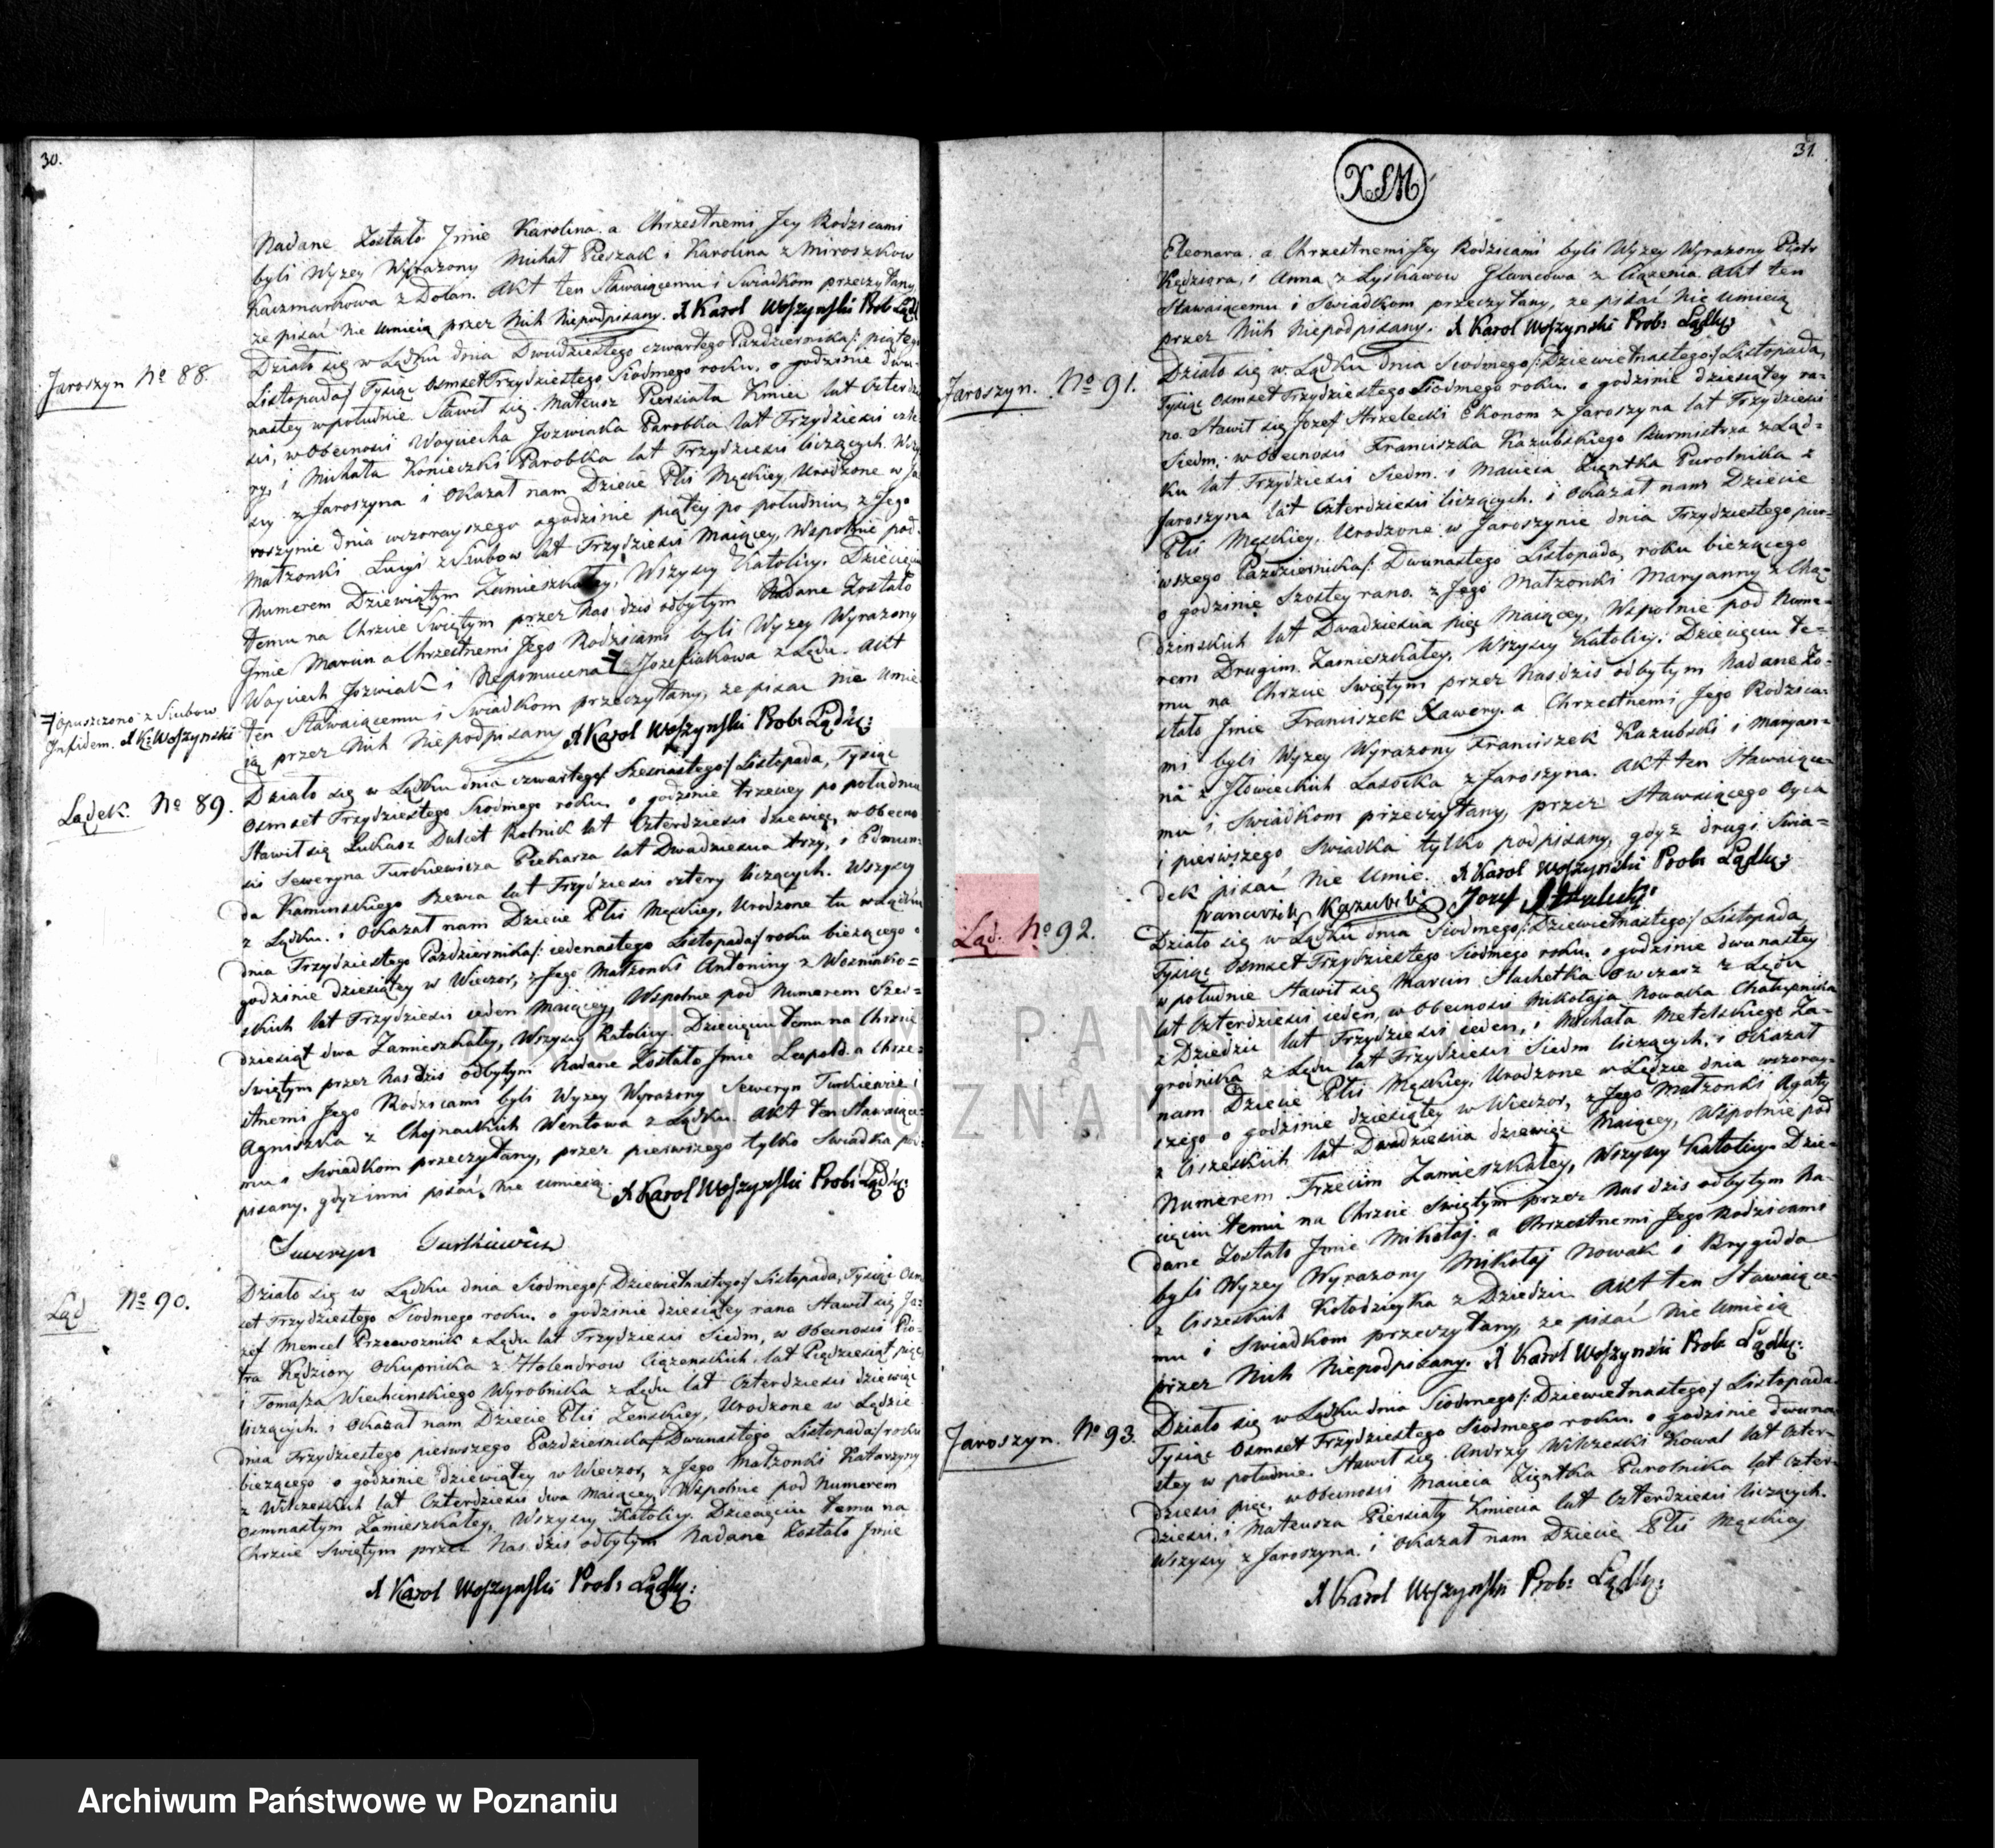 30.
Nadane Zostało Jmie Karolina. a Chrzestnemi Jey Rodzicami
byli Wyzey Wyrazony Michał Pieszak i Karolina z Miroszkow
Kaczmarkowa z Dolan. Akt ten Stawaiącemu i Swiadkom przeczytany,
ze pisać nie umieią przez Nich Niepodpisany. X Karol Woszynski Prob: Ląd
Jaroszyn No 88.
Działo się w Lądku dnia Dwudziestego czwartego Pazdziernika/: piątego
Listopada/ Tysiąc Osmset Trzydziestego Siodmego roku. o godzinie dwu-
nastey wpołudnie. Stawił się Mateusz Piersiała Kmieć lat Czterdzie
sci, w Obecnosci Woyciecha Jozwiaka Parobka lat Trzydziesci czte
ry, i Michała Konieczki Parobka lat Trzydziesci liczących. Wszy
scy z Jaroszyna i Okazał nam Dziecie Płci Męskiey, Urodzone w Ja
roszynie dnia wczorayszego ogodzinie piątey po południu, z Jego
Małzonki Łucyi z Skubow lat Trzydziesci Maiącey, Wspolnie pod
Numerem Dziewiątym Zamieszkałey, Wszyscy Katolicy. Dziecięciu
temu na Chrzcie Swiętym przez Nas dzis odbytym Nadane Zostało
Jmie Marcin a Chrzestnemi Jego Rodzicami byli Wyzey Wyrazony
Woyciech Jozwiak i Nepomucena Jozefiakowa z Lędu. Akt
ten Stawaiącemu i Swiadkom przeczytany, ze pisać nie umie
ią przez Nich Niepodpisany X Karol Woszynski Prob: Lądkj:
opuszczono z Skubow
Infidem. X K: Woszynski
Lądek. No 89.
Działo się w Lądku dnia czwartego/ Szesnastego/ Listopada, Tysiąc
Osmset Trzydziestego Siodmego roku. o godzinie trzeciey po południu
Stawił się Łukasz Dulcet Rolnik lat Czterdziesci dziewięc, w Obecno
sci Seweryna Turkiewicza Piekarza lat Dwadziescia trzy, i Edmun-
da Kaminskiego Szewca lat Trzydziesci cztery liczących. Wszyscy
z Lądku. i Okazał nam Dziecie Płci Męskiey, Urodzone tu w Lądku
dnia Trzydziestego Pazdziernika/: iedenastego Listopada/ roku biezącego o
godzinie dziesiątey w Wieczor, z Jego Małzonki Antoniny z Wozniako=
skich lat Trzydziesci ieden Maiącey, Wspolnie pod Numerem Szes=
dziesiąt dwa Zamieszkałey, Wszyscy Katolicy. Dziecięciu temu na Chrzcie
Swiętym przez Nas dzis odbytym Nadane Zostało Jmie Leopold. a Chrze=
stnemi Jego Rodzicami byli Wyzey Wyrazony Seweryn Turkiewicz i
Agniszka z Choynackich Wentowa z Lądku Akt ten Stawaiące=
mu i Swiadkom przeczytany, przez pierwszego tylko Swiadka pod:
pisany, gdyz inni pisać nie umieią. X Karol Woszynski Prob: Lądkj:
Seweryn Turkiewicz
Ląd No 90.
Działo się w Lądku dnia Siodmego/: Dziewietnastego:/ Listopada, Tysiąc Osm
set Trzydziestego Siodmego roku. o godzinie dziesiątey rana Stawił się Jo=
zef Mencel Przewoznik z Lądu lat Trzydziesci Siedm, w Obecnosci Pio=
tra Kędziory Okupnika z Holendrow Ciązenskich lat Pięcdziesiąt pięc,
i Tomasza Wiecheinskiego Wyrobnika z Lędu lat Czterdziesci dziewięc
liczących. i Okazał nam Dziecie Płci Zenskiey, Urodzone w Lędzie
dnia Trzydziestego pierwszego Pazdziernika/ Dwunastego Listopada/ roku
biezącego o godzinie dziewiątey w Wieczor, z Jego Małzonki Katarzyny
z Wilczeskich lat Czterdziesci dwa Maiącey, Wspolnie pod Numerem
osmnastym Zamieszkałey, Wszyscy Katolicy. Dziecięciu temu na
Chrzcie Swiętym przez Nas dzis odbytym Nadane Zostało Jmie
X Karol Woszynski Prob: Lądkj:
31.
XSM
Eleonara. a Chrzestnemi Jey Rodzicami byli Wyzey Wyrazony Piotr
Kędziora, i Anna z Łyskawow Glancowa z Ciązenia. Akt ten
Stawaiącemu i Swiadkom przeczytany, ze pisać Nie umieią
przez Nich Niepodpisany. X Karol Woszynski Prob: Lądkj:
Jaroszyn. No 91.
Działo się w Lądku dnia Siodmego/: Dziewietnastego:/ Listopada,
Tysiąc Osmset Trzydziestego Siodmego roku. o godzinie dziesiątey ra=
no. Stawił się Jozef Strzelecki Ekonom z Jaroszyna lat Trzydziesci
Siedm, w Obecnosci Franciszka Kazubskiego Burmistrza z Ląd=
ku lat Trzydziesci Siedm. i Macieia Zientka Purotnika z
Jaroszyna lat Czterdziesci liczących. i Okazał nam Dziecie
Płci Męskiey, Urodzone w Jaroszynie dnia Trzydziestego pier=
wszego Pazdziernika/: Dwunastego Listopada, roku biezącego
o godzinie Szostey rano. z Jego Małzonki Maryanny z Chą=
dzinskich lat Dwadziescia pięc Maiącey, Wspolnie pod Nume=
rem Drugim Zamieszkałey. Wszyscy Katolicy. Dziecięciu te=
mu na Chrzcie Swiętym przez Nas dzis odbytym Nadane Zo=
stało Jmie Franciszek Xawery. a Chrzestnemi Jego Rodzica=
mi byli Wyzey Wyrazony Franciszek Kazubski i Maryan=
na z Słowieckich Lasocka z Jaroszyna. Akt ten Stawaiące=
mu i Swiadkom przeczytany, przez Stawaiącego Oyca
i pierwszego Swiadka tylko podpisany, gdyz drugi Swia=
dek pisać Nie umie. X Karol Woszynski Prob: Lądkj:
Franciszek Kazubski Jozef Strzelecki
Ląd. No 92.
Działo się w Lądku dnia Siodmego/: Dziewietnastego:/ Listopada
Tysiąc Osmset Trzydziestego Siodmego roku. o godzinie dwunastey
w południe Stawił się Marcin Stachetka Owczarz z Lądu
lat Czterdziesci ieden, w Obecnosci Mikołaja Nowaka Chałupnika
z Dziedzic lat Trzydziesci ieden, i Michała Metelskiego Za=
grodnika z Lędu lat Trzydziesci Siedm liczących. i Okazał
nam Dziecie Płci Męskiey, Urodzone w Lędzie dnia wczoray=
szego o godzinie dziesiątey w Wieczor, z Jego Małzonki Agaty
z Ciszeskich lat Dwadziescia dziewięc Maiącey, Wspolnie pod
Numerem Trzecim Zamieszkałey, Wszyscy Katolicy. Dzie=
cięciu temu na Chrzcie Swiętym przez Nas dzis odbytym Na=
dane Zostało Jmie Mikołaj. a Chrzestnemi Jego Rodzicami
byli Wyzey Wyrazony Mikołaj Nowak i Brygidda
z Ciszeskich Kołodzieyka z Dziedzic Akt ten Stawaiące=
mu i Swiadkom przeczytany, ze pisać nie umieią
przez Nich Niepodpisany. X Karol Woszynski Prob: Lądkj:
Jaroszyn. No 93.
Działo się w Lądku dnia Siodmego/: Dziewietnastego:/ Listopada
Tysiąc Osmset Trzydziestego Siodmego roku. o godzinie dwuna=
stey w południe. Stawił się Andrzy Wilczeski Kowal lat Czter=
dziesci pięc, w Obecnosci Macieia Zientka Purotnika lat Czter=
dziesci, i Mateusza Piersiały Kmiecia lat Czterdziesci liczących.
Wszyscy z Jaroszyna. i Okazał nam Dziecie Płci Męskiey
X Karol Woszynski Prob: Lądkj:
ARCHIWUM PAŃSTWOWE
W POZNANIU
Archiwum Państwowe w Poznaniu